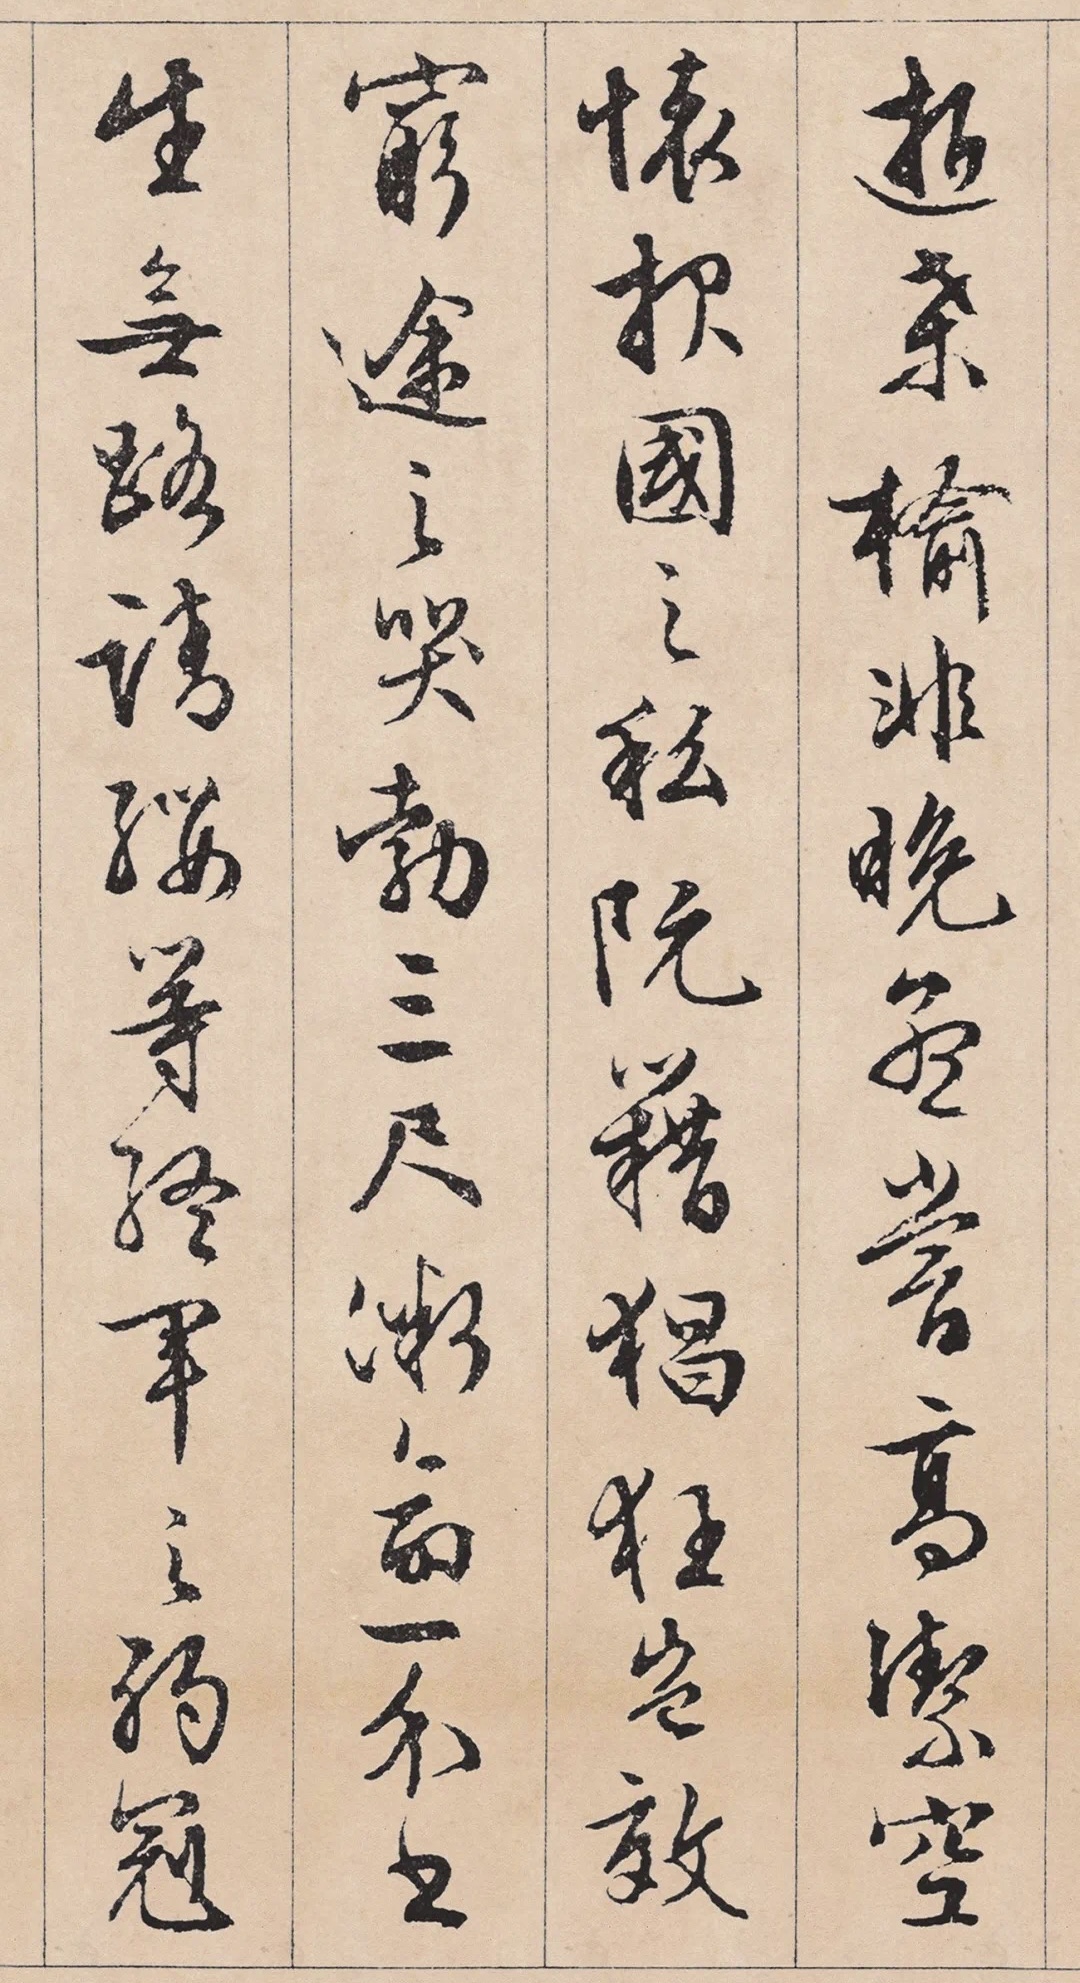 逝桑榆非晚孟嘗高潔空
懷報國之私阮藉猖狂豈效
窮途之哭勃三尺微命一介書
生無路請纓等終軍之弱冠